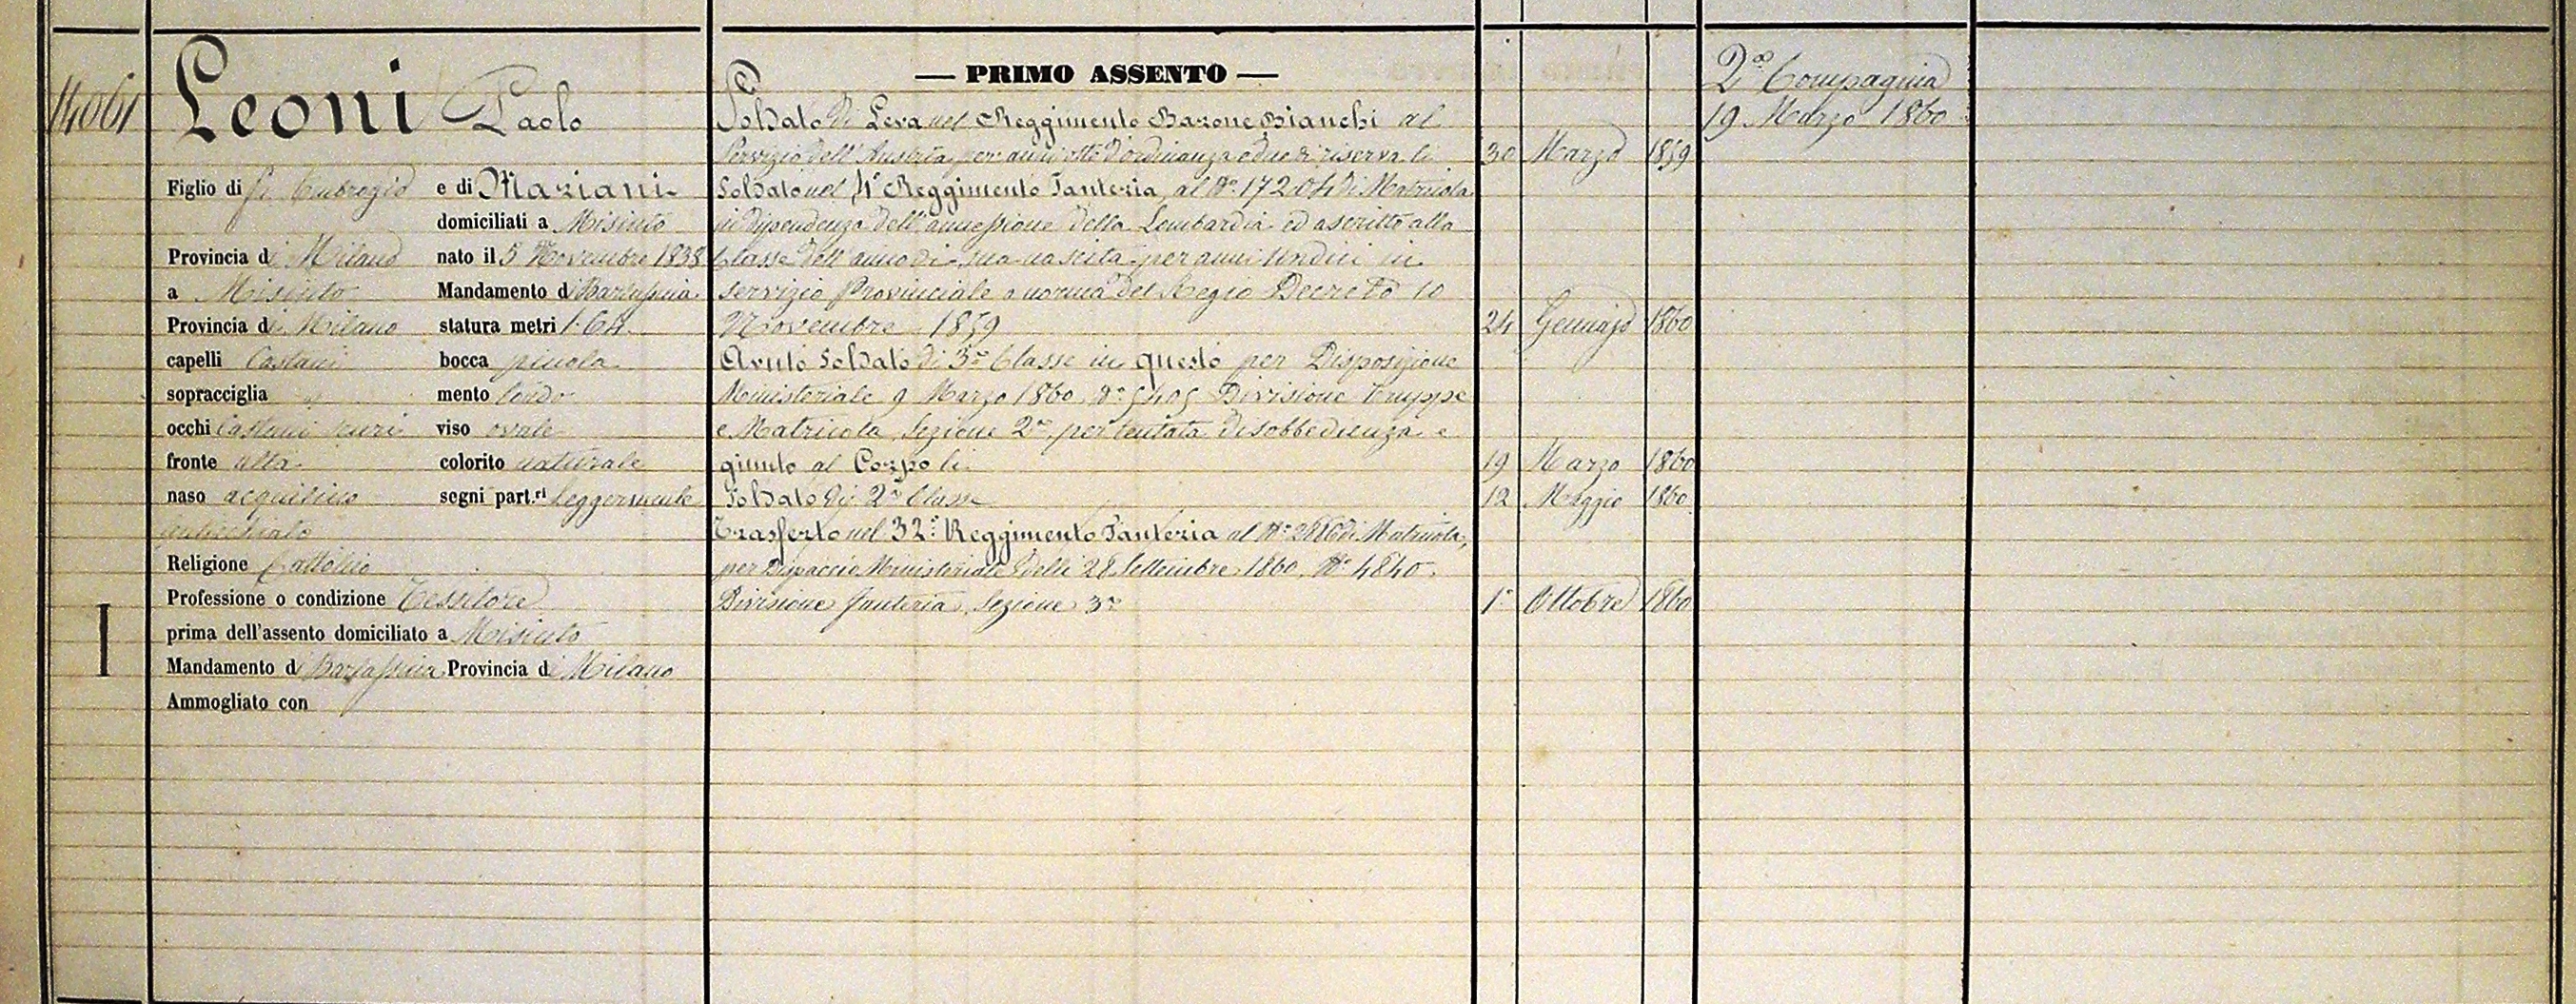 14061
Leoni Paolo
Figlio di fu Ambrogio e di Mariani
domiciliati a Misinto
Provincia di Milano nato il 5 Novembre 1838
a Misinto Mandamento di Barlassina
Provincia di Milano statura metri 1.64
capelli Castani bocca piccola
sopracciglia id mento tondo
occhi Castani scuri viso ovale
fronte alta colorito naturale
naso acquilino segni part.ri Leggermente
Religione Cattolico
Professione o condizione Tessitore
prima dell'assento domiciliato a Misinto
Mandamento di Barlassina Provincia di Milano
Ammogliato con
I
— PRIMO ASSENTO —
Soldato di Leva nel Reggimento Barone Bianchi al
Servizio dell'Austria per anni otto d'ordinanza e due di riserva li 30 Marzo 1859
Soldato nel 4° Reggimento Fanteria, al N° 17204 di Matricola
in dipendenza dell'annessione della Lombardia ed ascritto alla
Classe dell'anno di sua nascita per anni Undici in
servizio Provinciale a norma del Regio Decreto 10
Novembre 1859 24 Gennajo 1860
Avuto Soldato di 3a Classe in questo per Disposizione
Ministeriale 9 Marzo 1860 N° 5405 Divisione Truppe
e Matricola, Sezione 2a, per tentata disobbedienza e
giunto al Corpo li 19 Marzo 1860
Soldato di 2a Classe 12 Maggio 1860
Trasferto nel 32° Reggimento Fanteria al N° di Matricola,
per Dispaccio Ministeriale delli 28 Settembre 1860, N° 4840,
Divisione fanteria, Sezione 3a 1° Ottobre 1860
2a Compagnia
19 Marzo 1860